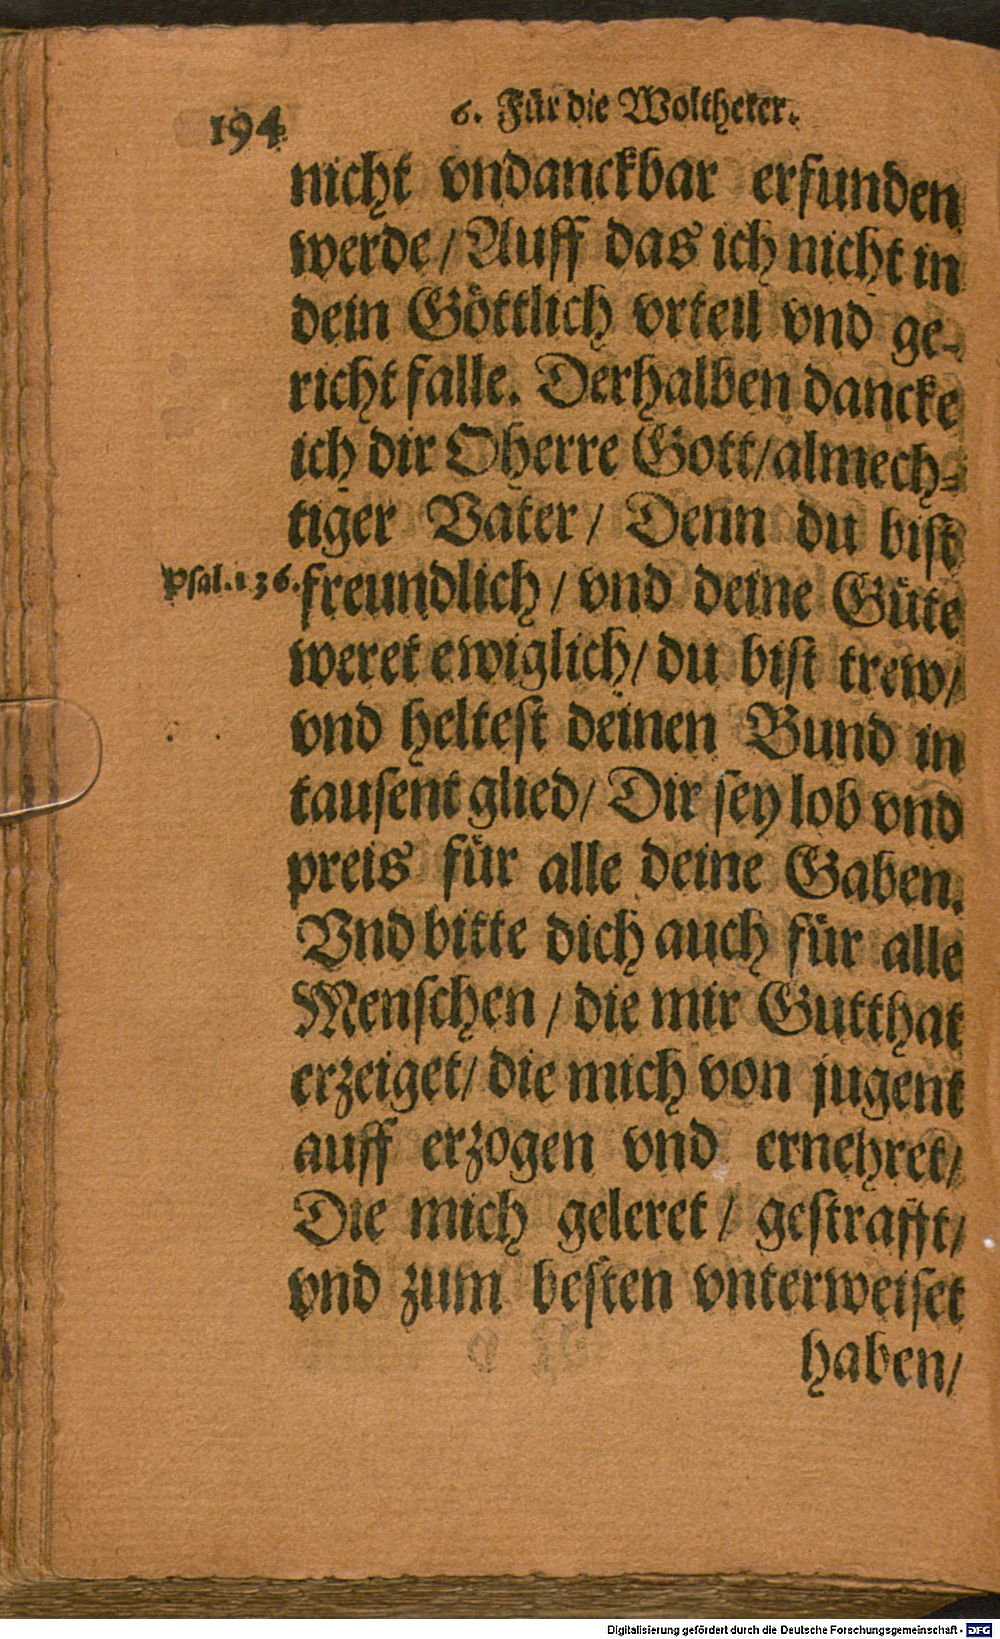 194
6. Für die Woltheter.
nicht vndanckbar erfunden
werde / Auff das ich nicht in
dein Göttlich vrteil vnd ge-
richt falle. Derhalben dancke
ich dir O herre Gott / almech-
tiger Vater / Denn du bist
Psal. 136. freundlich / vnd deine Güte
weret ewiglich / du bist trew /
vnd heltest deinen Bund in
tausent glied / Dir sey lob vnd
preis für alle deine Gaben.
Vnd bitte dich auch für alle
Menschen / die mir Gutthat
erzeiget / die mich von jugent
auff erzogen vnd ernehret /
Die mich geleret / gestrafft /
vnd zum besten vnterweiset
haben /
Digitalisierung gefördert durch die Deutsche Forschungsgemeinschaft - DFG